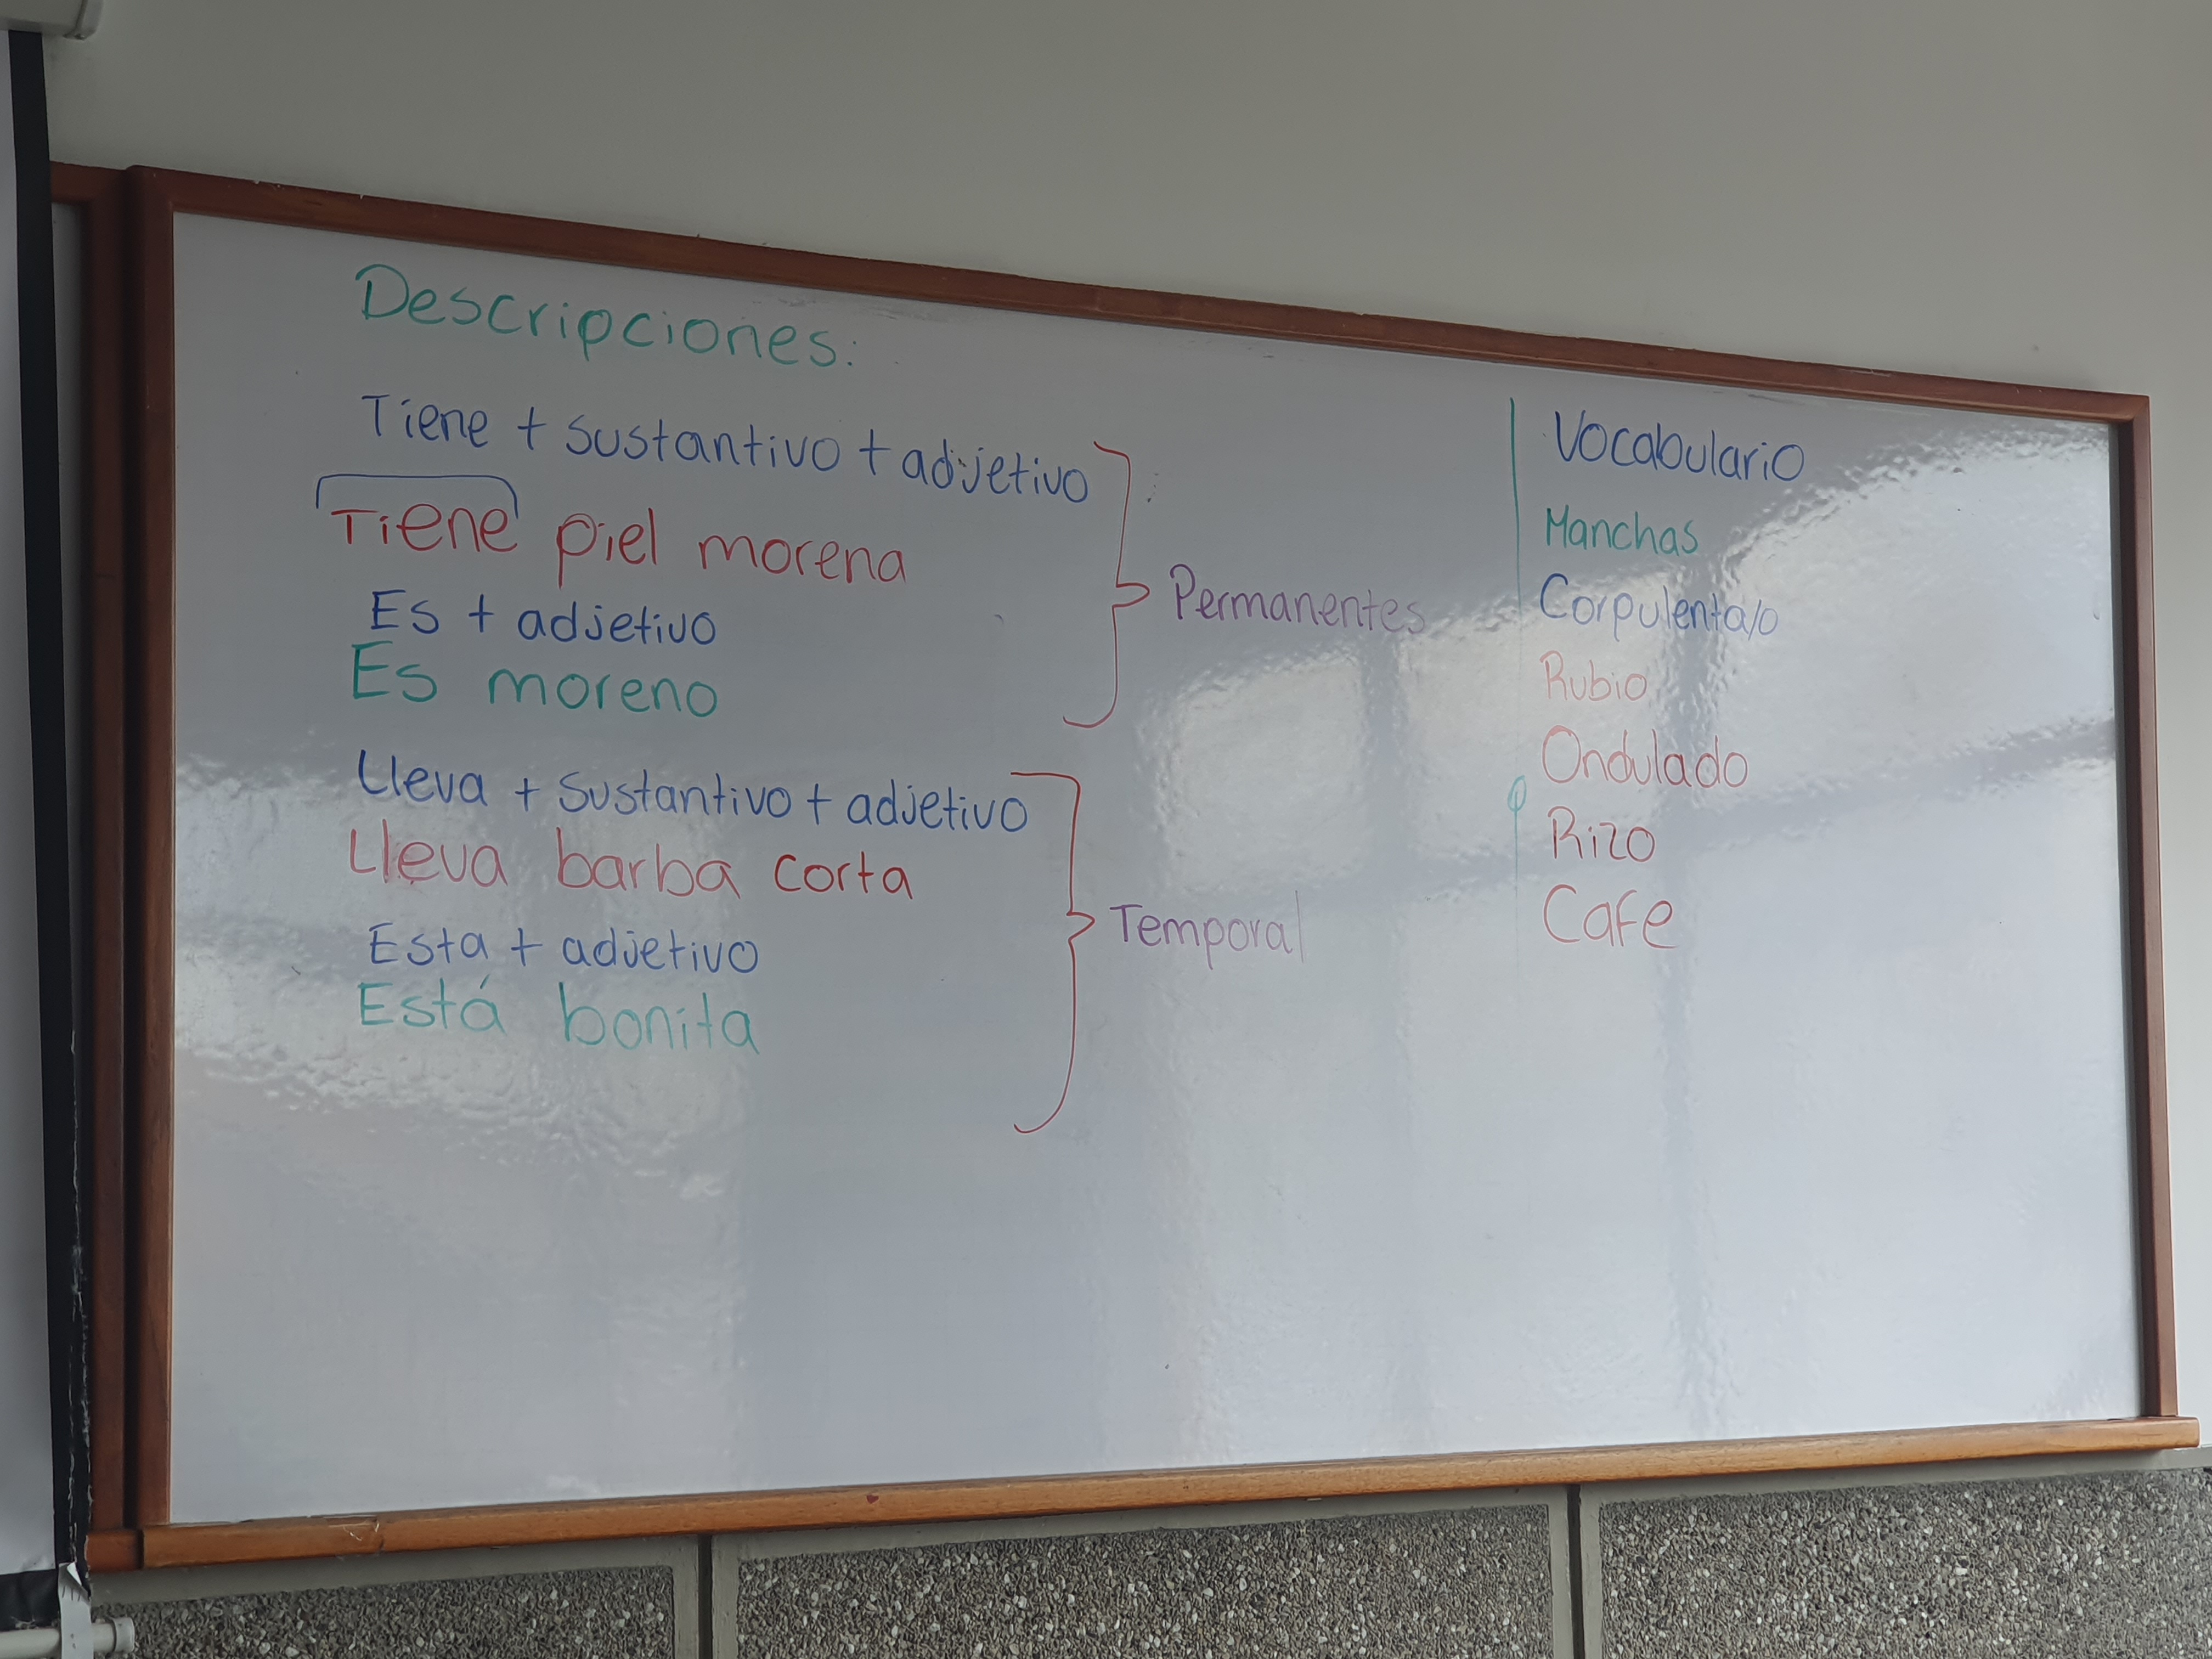 Descripciones:
Tiene + sustantivo + adjetivo
Tiene piel morena
Es + adjetivo
Es moreno
Permanentes
Lleva + sustantivo + adjetivo
Lleva barba corta
Esta + adjetivo
Está bonita
Temporal
Vocabulario
Manchas
Corpulenta/o
Rubio
Ondulado
Rizo
Cafe